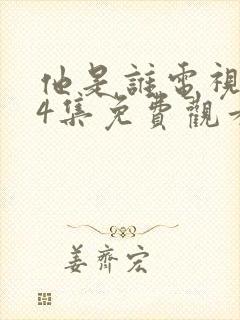 他是誰電視
4集免費觀看
姜齊宏